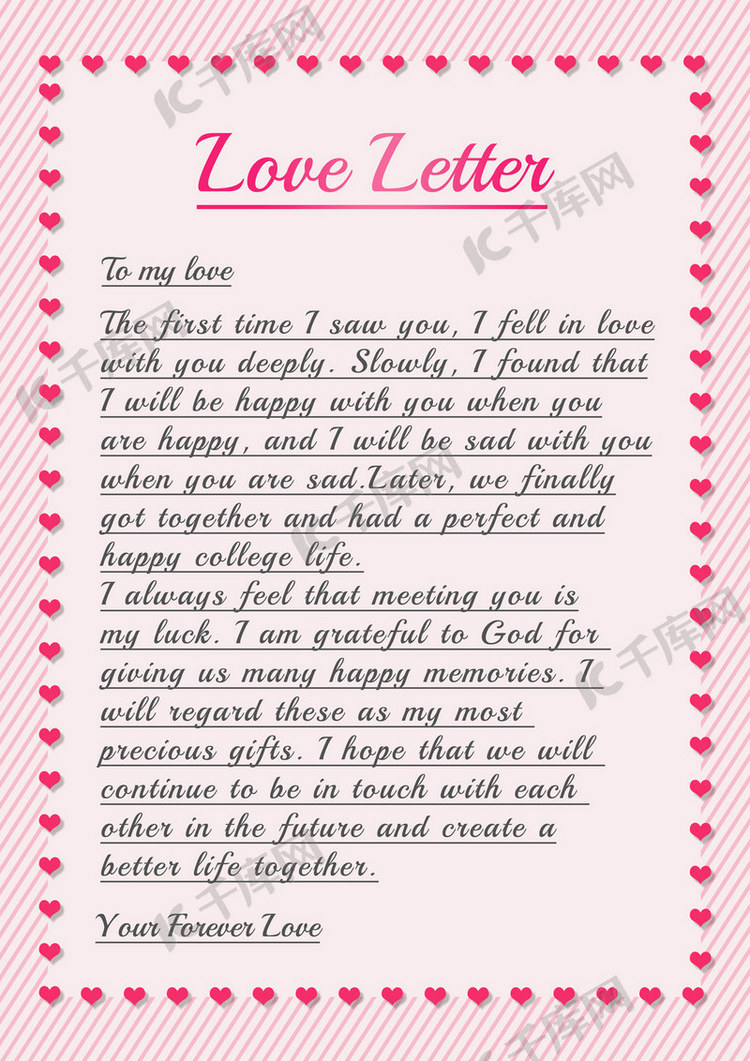 Love Letter
To my love
The first time I saw you, I fell in love
with you deeply. Slowly, I found that
I will be happy with you when you
are happy, and I will be sad with you
when you are sad.Later, we finally
got together and had a perfect and
happy college life.
I always feel that meeting you is
my luck. I am grateful to God for
giving us many happy memories. I
will regard these as my most
precious gifts. I hope that we will
continue to be in touch with each
other in the future and create a
better life together.
Your Forever Love
千库网
千库网
千库网
千库网
千库网
千库网
千库网